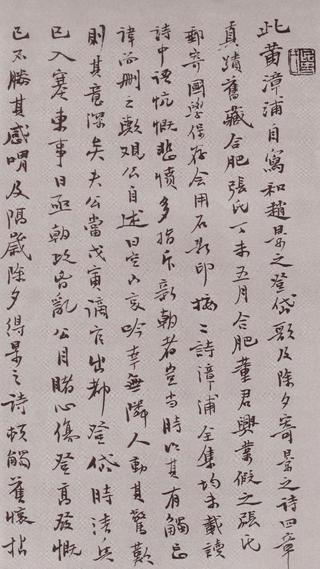 此黃漳浦自寫和趙景之登岱歌及除夕寄景之詩四章
真蹟舊藏合肥張氏丁未五月合肥董君興業假之張氏
郵寄國學保存會用石影印按二詩漳浦全集均未載讀
詩中語忼慨悲憤多指斥新朝者豈當時以其有觸忌
諱而刪之歟觀公自述曰空山哀吟幸無隣人動其驚歎
則其意深矣夫公當戊寅謫官出都登岱時清兵
已入塞東事日亟朝政昏亂公目睹心傷登高發慨
已不勝其感喟及隔歲除夕得景之詩頓觸舊懷拈